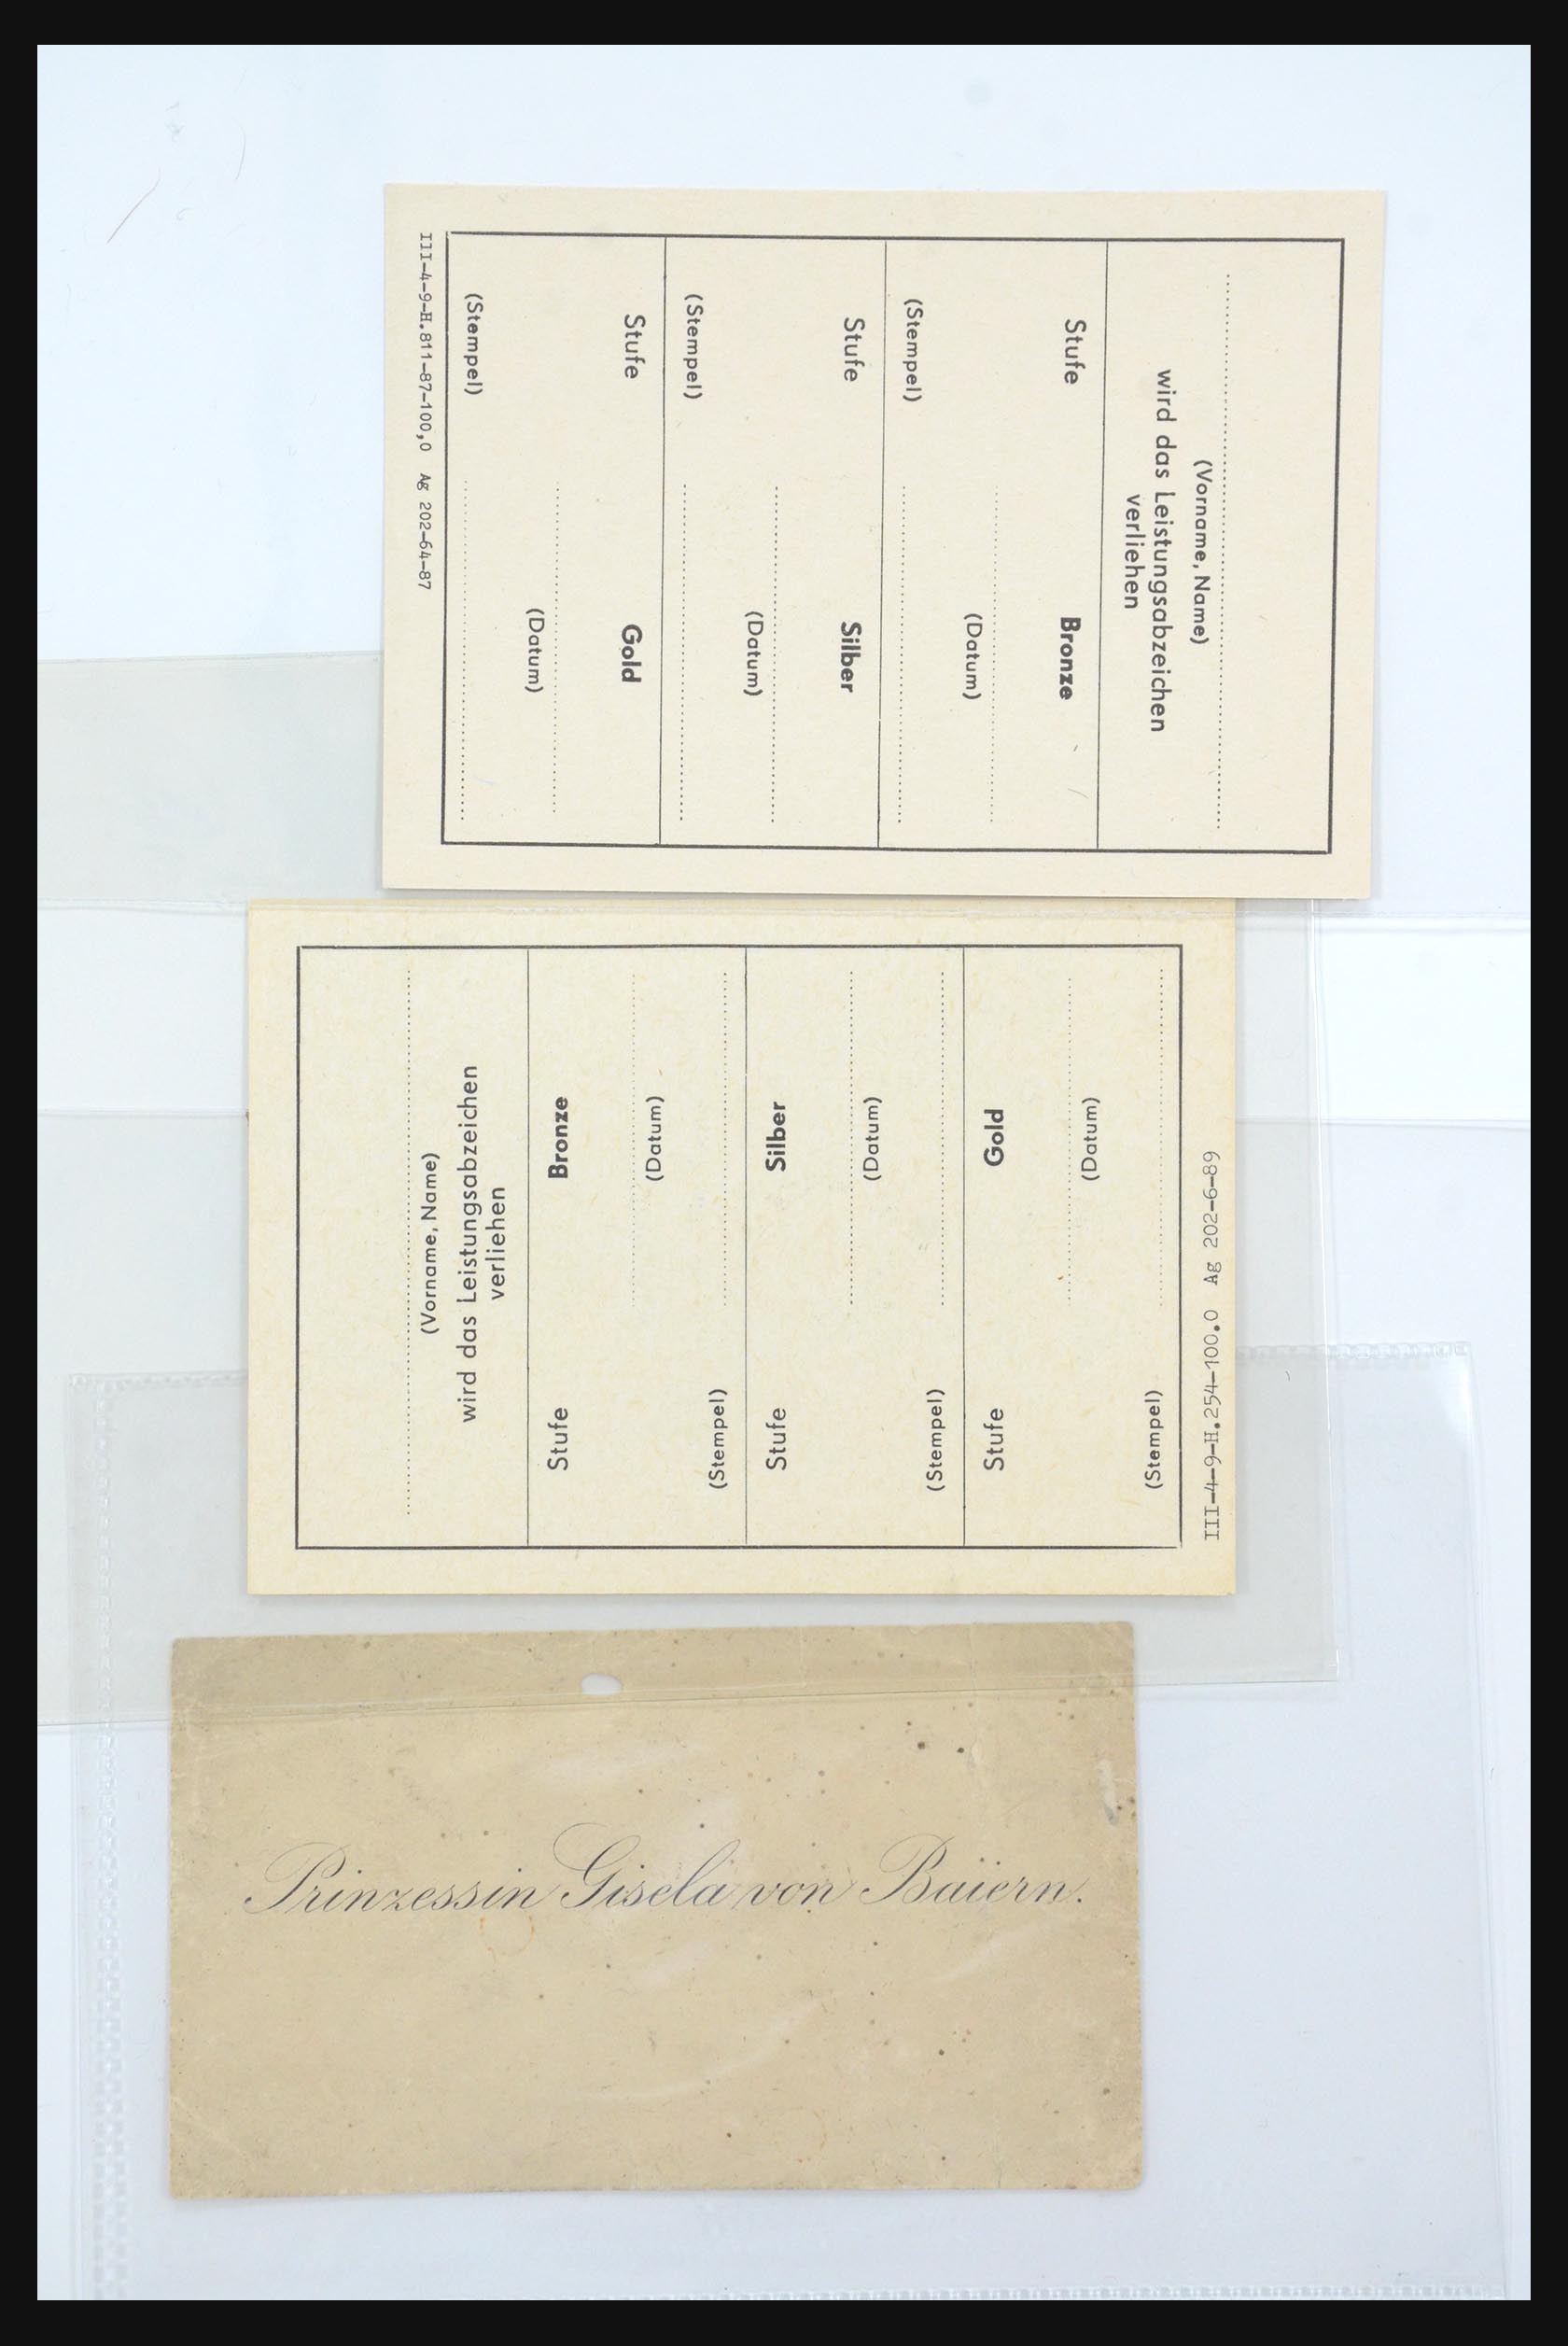 (Vorname, Name)
wird das Leistungsabzeichen
verliehen
Stufe Bronze
(Datum)
(Stempel)
Stufe Silber
(Datum)
(Stempel)
Stufe Gold
(Datum)
(Stempel)
III-4-9-H.811-87-100,0 Ag 202-64-87
(Vorname, Name)
wird das Leistungsabzeichen
verliehen
Stufe Bronze
(Datum)
(Stempel)
Stufe Silber
(Datum)
(Stempel)
Stufe Gold
(Datum)
(Stempel)
III-4-9-H.254-100.0 Ag 202-6-89
Prinzessin Gisela von Baiern.